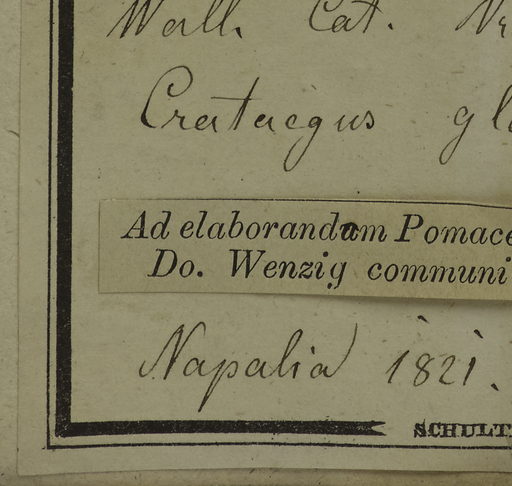 Wall. Cat.
Crataegus gl
Ad elaborandam Pomace
Do. Wenzig communi
Napalia 1821.
SCHULT